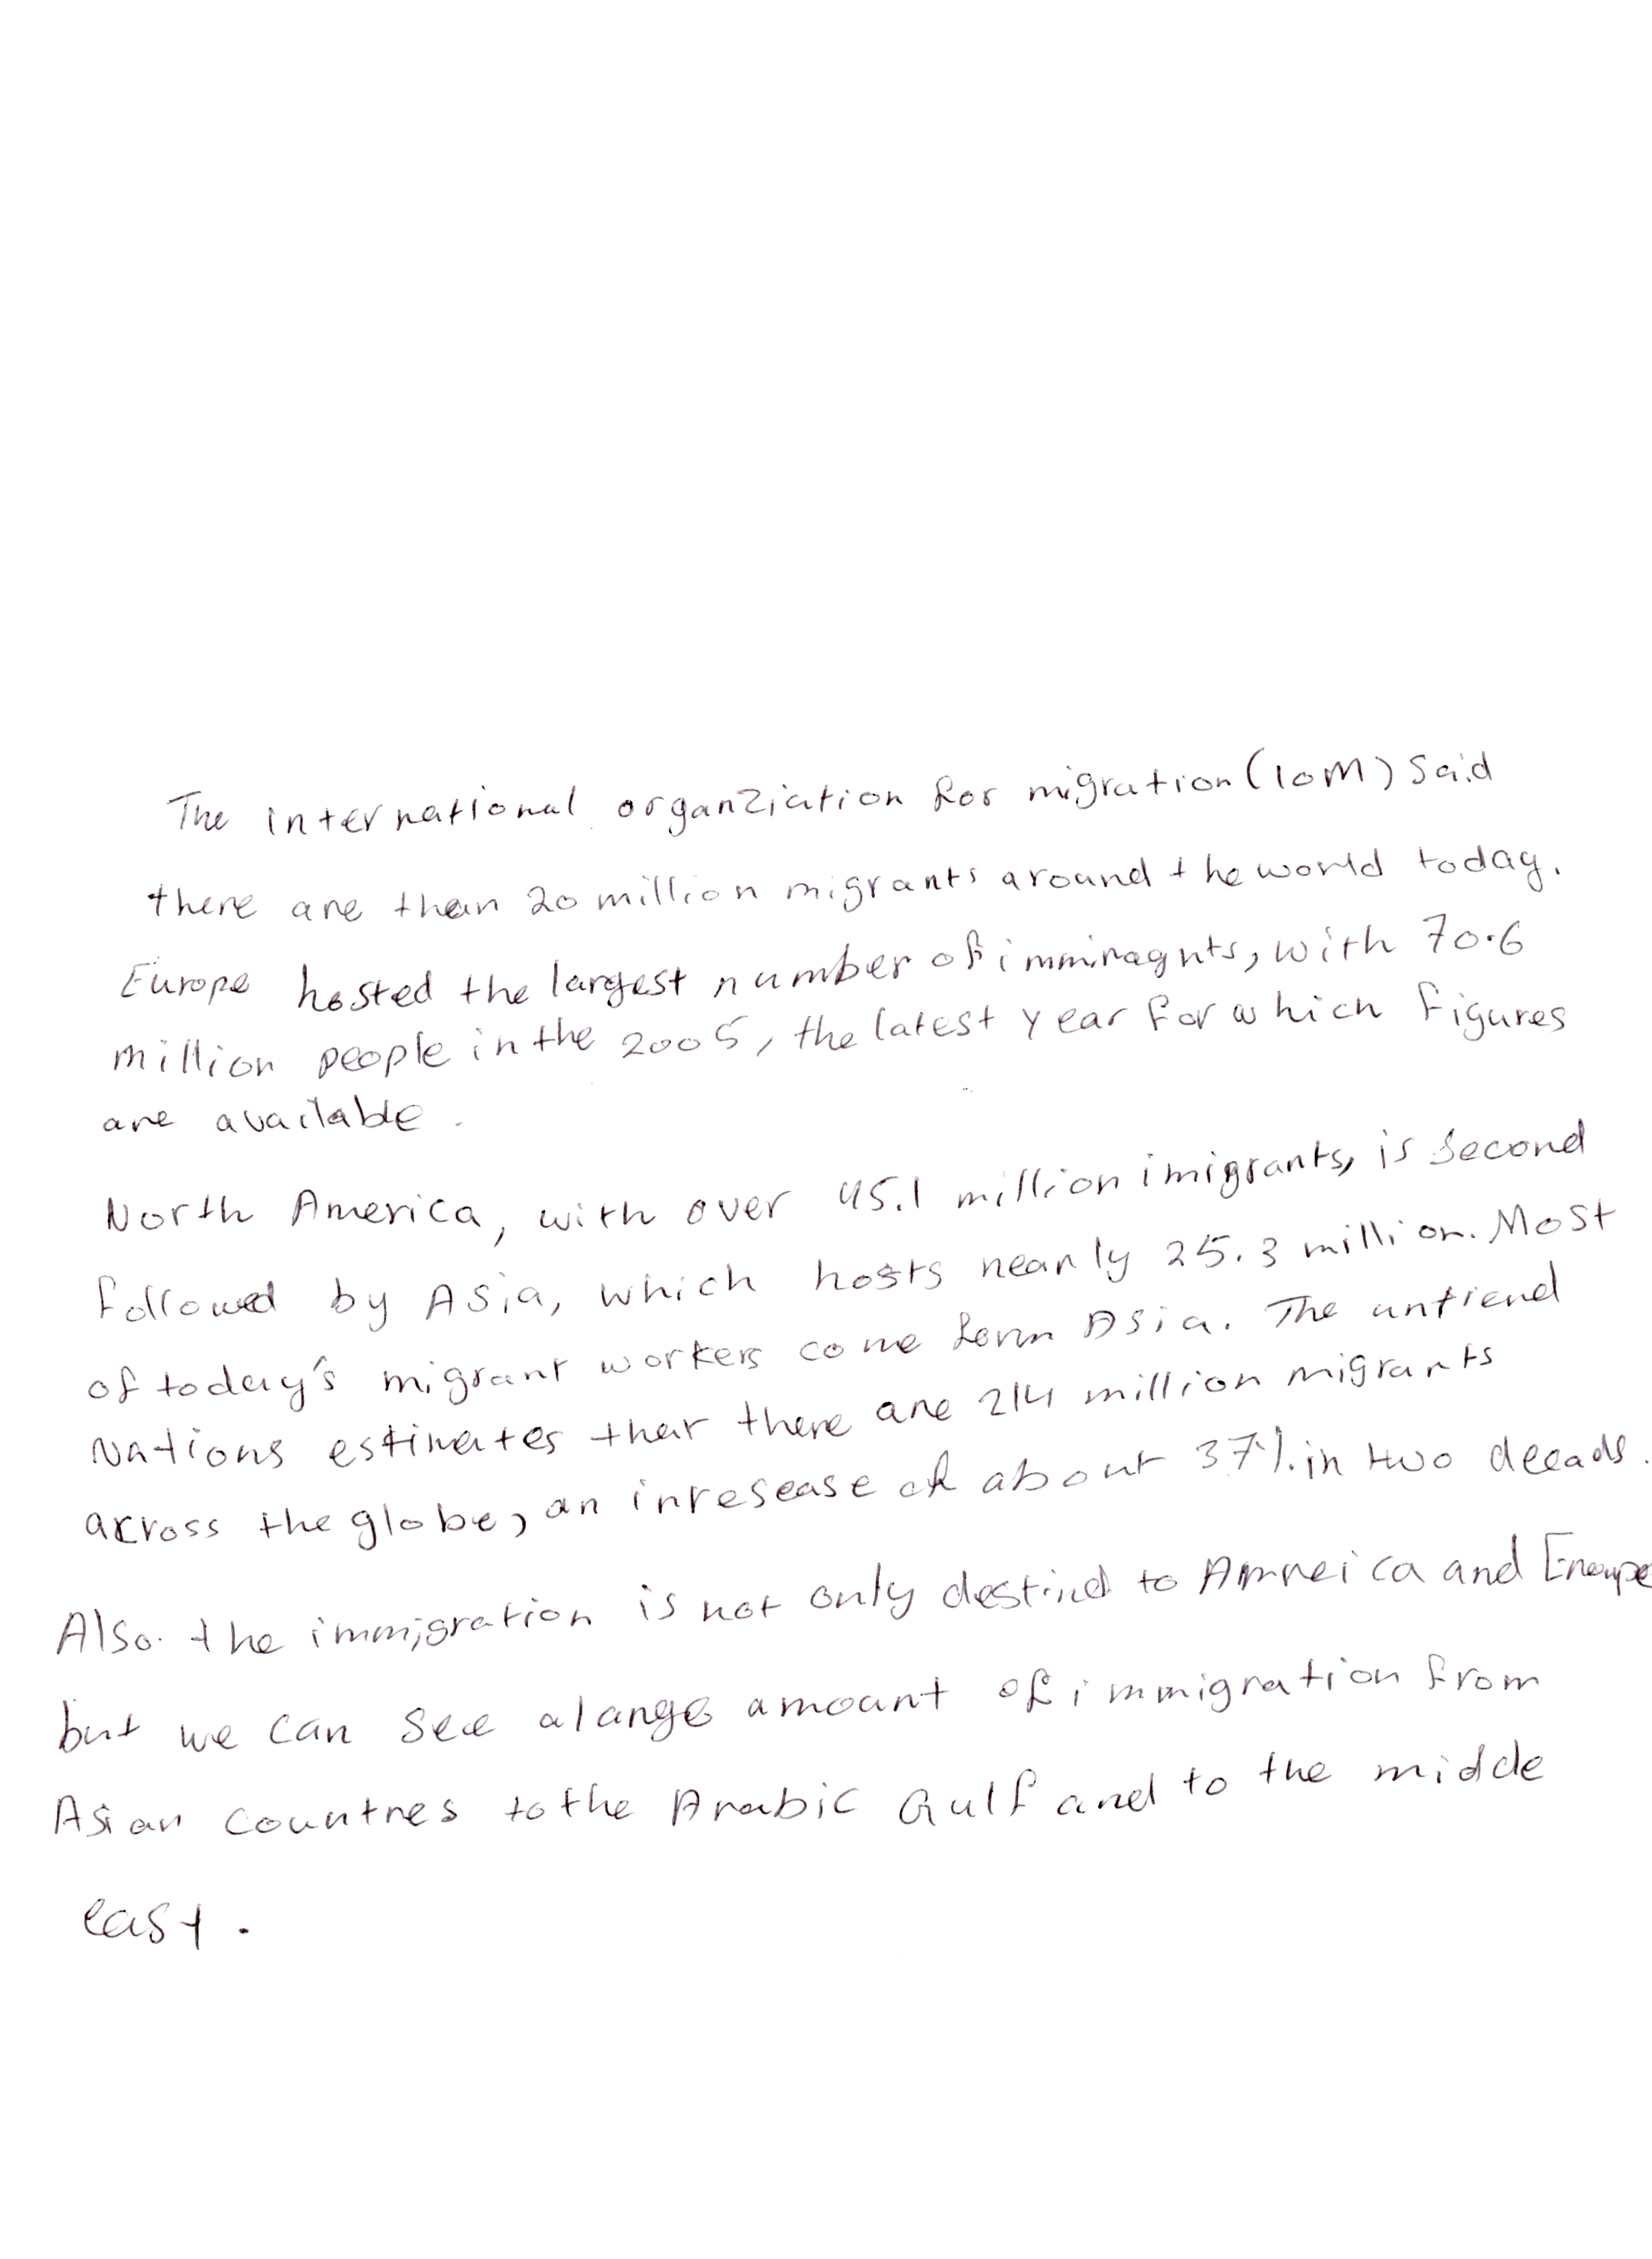 The international organziation for migration (IOM) said
there are than 20 million migrants around the world today.
Europe hosted the largest number of imminagnts, with 70.6
million people in the 2005, the latest year for which figures
are available.
North America, with over 45.1 million imigrants, is second
followed by Asia, which hosts nearly 25.3 million. Most
of today's migrant workers come form Asia. The untiend
Nations estimates that there are 214 million migrants
across the globe, an inresease of about 37% in two decads.
Also the immigration is not only destind to Amreica and Eroupe
but we can see a large amount of immigration from
Asian countres to the Arabic Gulf and to the middle
east.